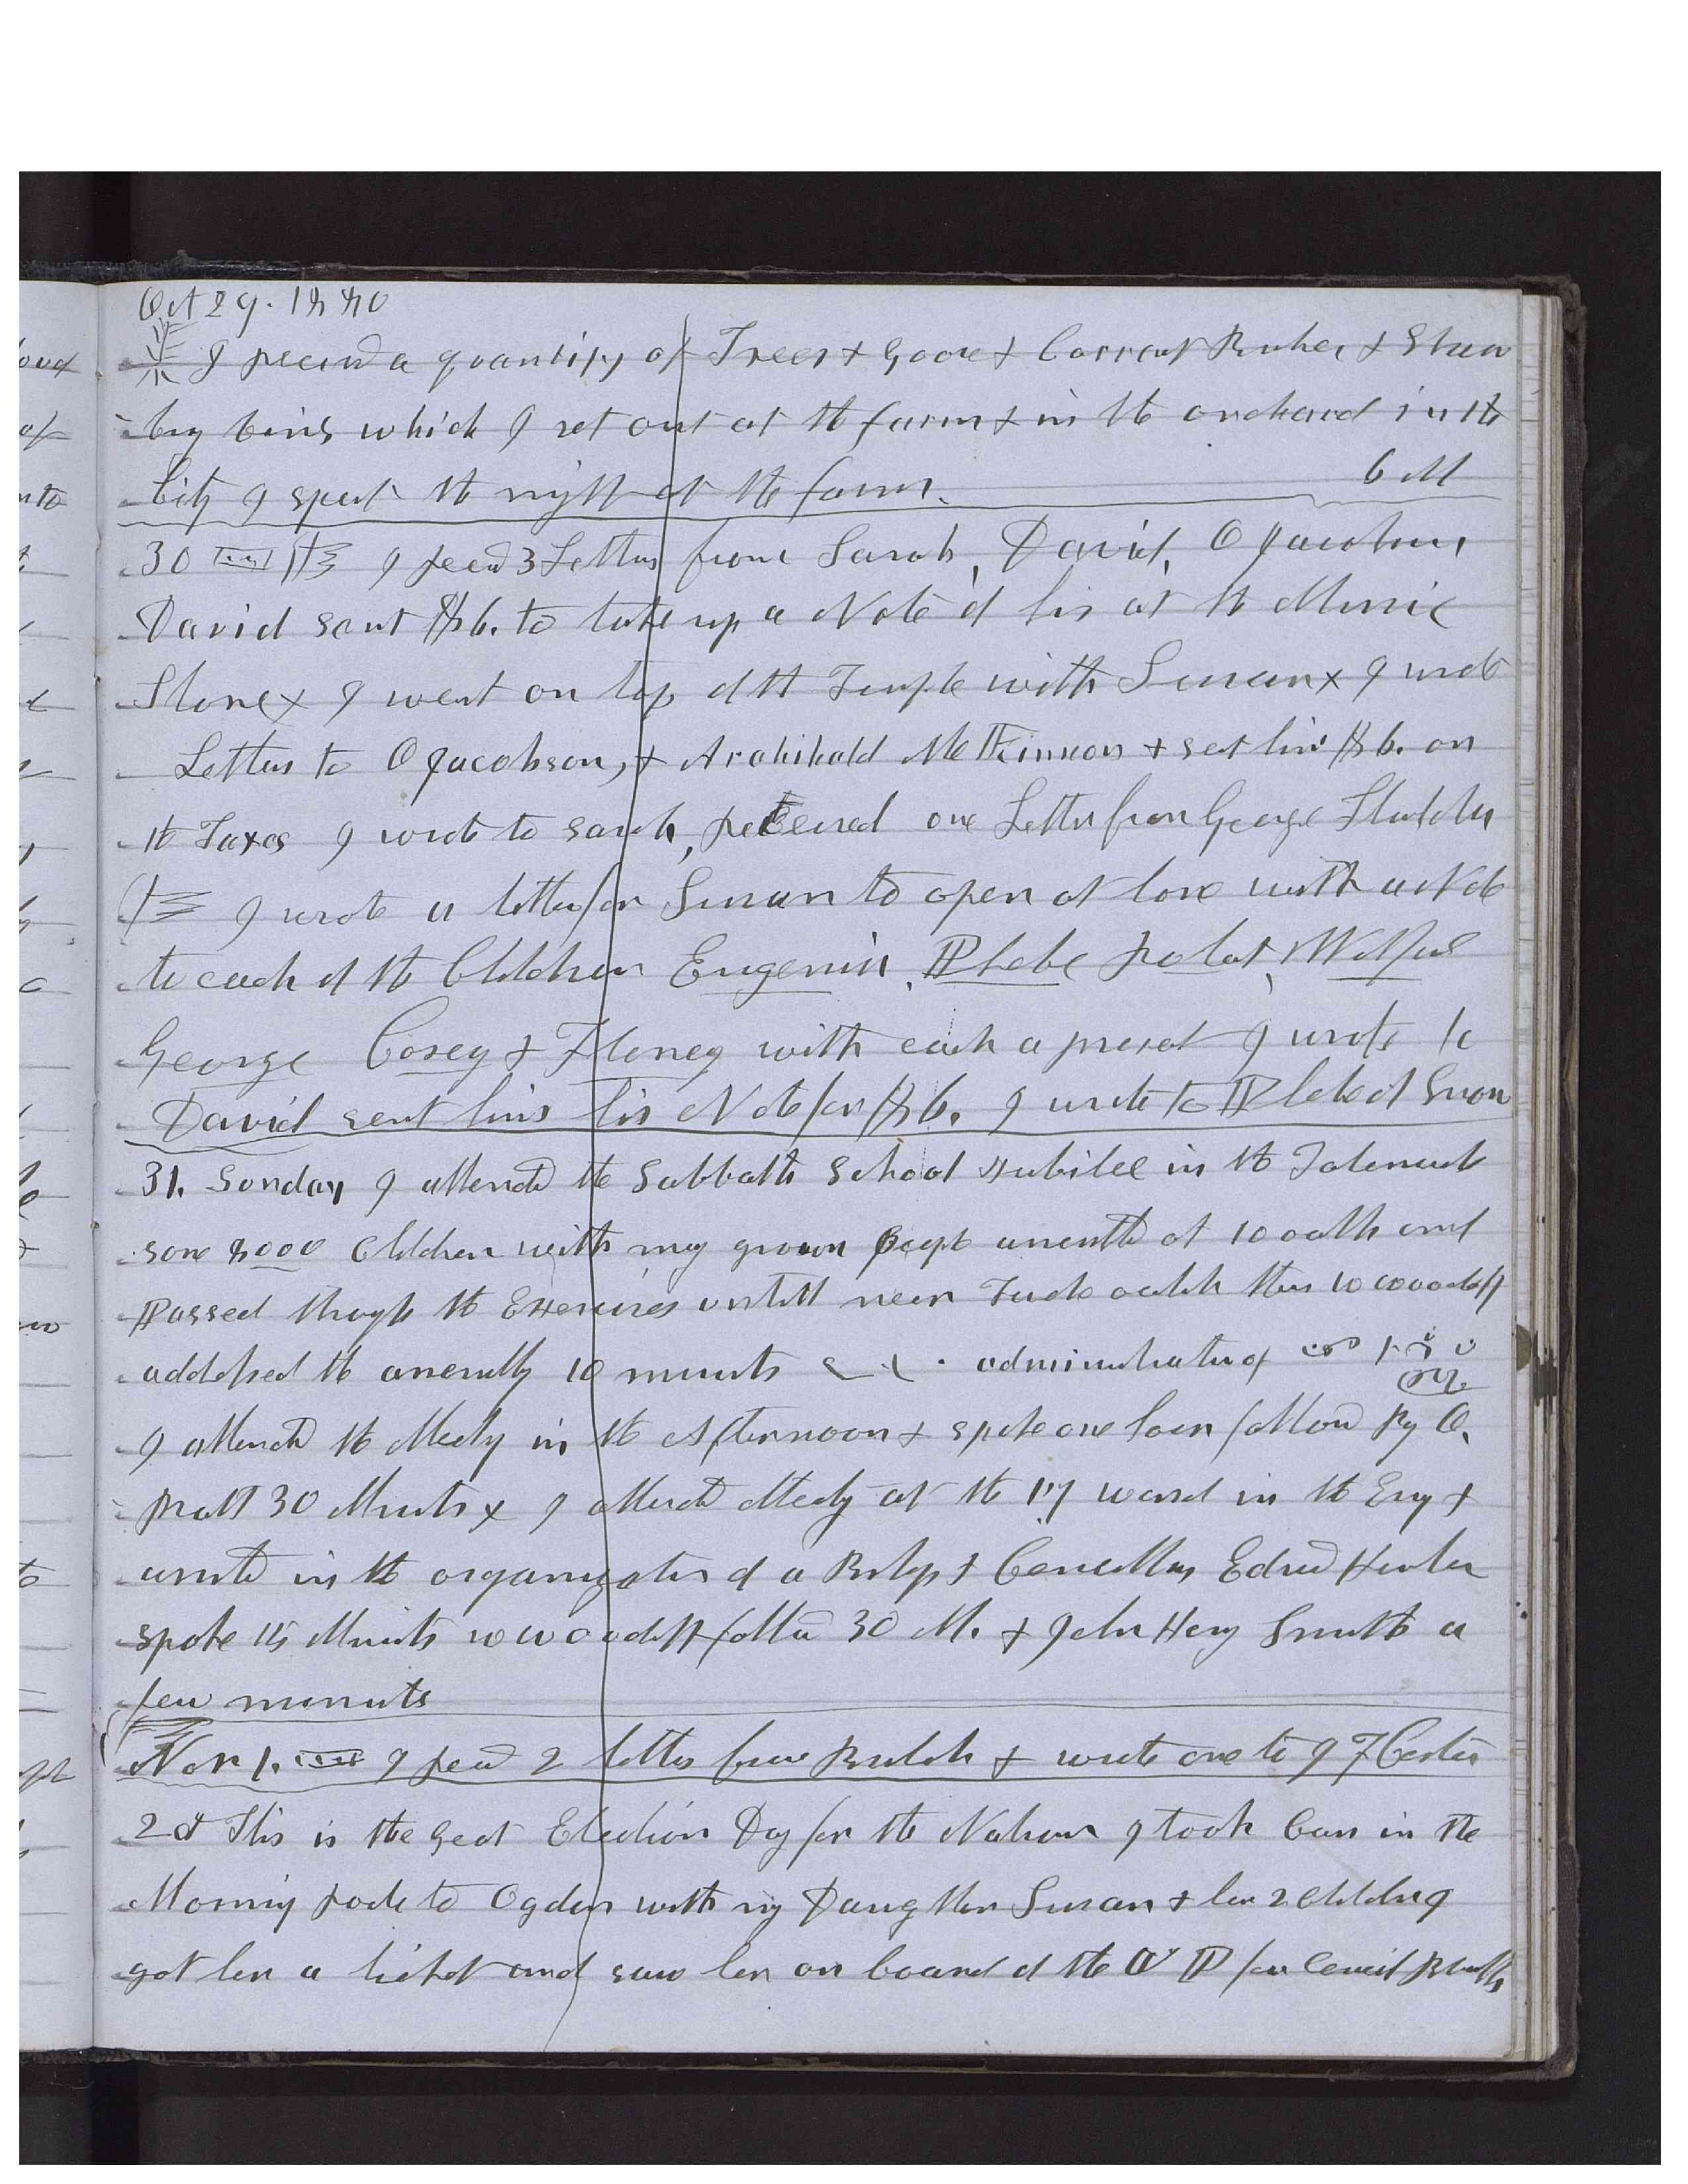 Oct 29. 1880
I receivd a quantity of Trees & Goose & Currant Bushes & Straw
bery vines which I set out at the farm & in the orchard in the
City I spent the night at the farm. 6 M
30 I recd 3 Letters from Sarah, David, O Jacobson,
David sent $6. to take up a Note of his at the Music
Store & I went on top of the Temple with Susan & I wrote
Letters to O Jacobson, & Archibald McKinnon & sent him $6. on
the Taxes I wrote to Sarah, received one Letter from George
I wrote a letter for Susan to open at home with a Note
to each of the Children Eugenia, Phebe, Wilford
George Cosey & with each a present I wrote to
David sent him his Note for $6. I wrote to Phebe of Snow
31. Sunday I attended the Sabbath School Jubilee in the Tabernacle
some 8000 Children with many grown people assembled at 10 oclk and
Passed through the Exercises untill near Twelve oclok then W Woodruff
addressed the assembly 10 minuts administrating
I attended the Meeting in the Afternoon & spoke one hour followed By O.
Pratt 30 Minuts & I attended Meeting at the 17 ward in the Evening &
assisted in the organization of a Bishop & Councillors Edward Hunter
spoke 15 Minuts W Woodruff followed 30 M. & John Henry Smith a
few minuts
Nov 1. I recd 2 letters from Bulah & wrote one to J F Carter
2d This is the great Election Day for the Nation I took Cars in the
Morning rode to Ogden with my Daughter Susan & her 2 Children I
got her a ticket and saw her on board of the U P for Council Bluffs